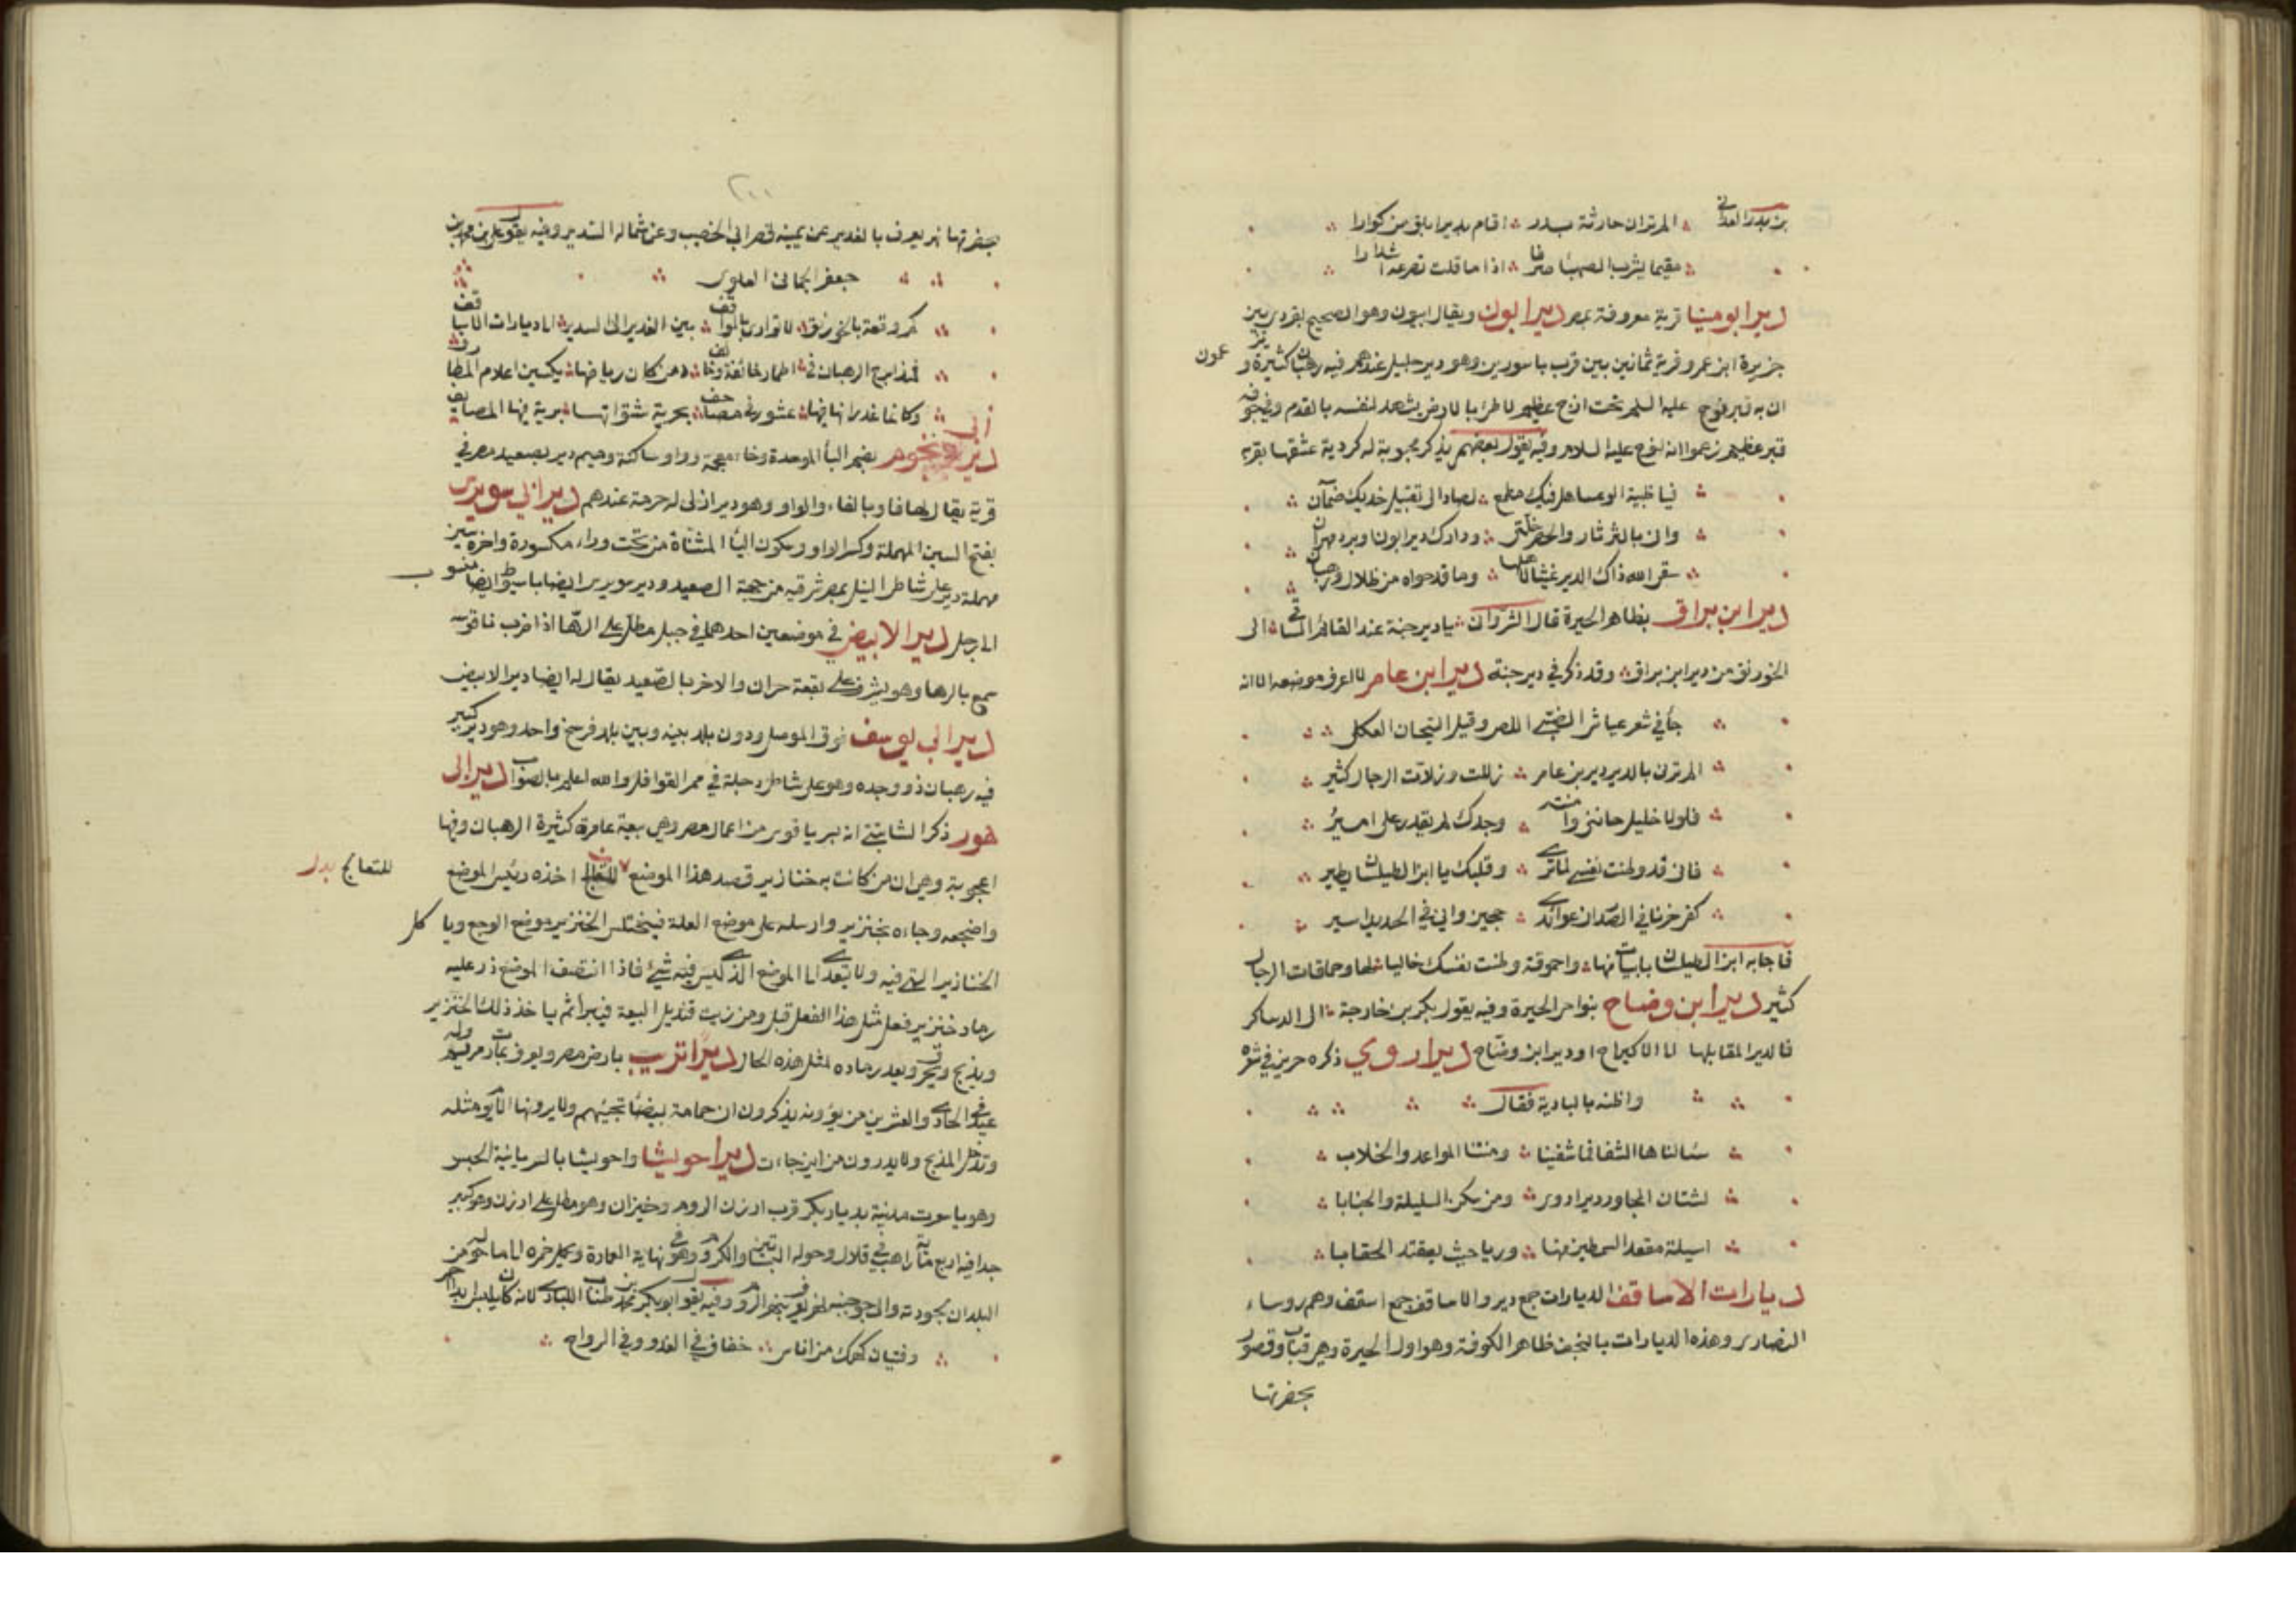 بن بدر الغداني ∴ الم تر ان حارثة بن بدر ∴ اقام بدير ابلق من كوارا ∴
∴ مقيما يشرب الصهبا صرفا ∴ اذا ما قلت تصرعه استدارا ∴
دير ابو مينا قرية معروفة بمصر دير ابون ويقال ابيون وهو الصحيح بقردى بين
جزيرة ابن عمر وقرية ثمانين قرب باسورين وهو دير جليل عندهم فيه رهبان كثيرة و يزعمون
ان به قبر نوح عليه السلم تحت ازج عظيم لاطئ بالارض يشهد لنفسه بالقدم وفي جوفه
قبر عظيم زعموا انه لنوح عليه السلام وفيه يقول بعضهم يذكر محبوبة له كردية عشقها بقربه
∴ فيا ظبية الوعسا هل فيك مطمع ∴ لصاد الى تقبيل خديك ضمآن ∴
∴ واني بالثرثار والحضر خلتي ∴ ودارك دير ابون او برد مهران ∴
∴ سقى الله ذاك الدير غيثا لاهله ∴ وما قد حواه من ظلال ورهبان ∴
دير ابن براق بظاهر الحيرة قال الثرواني ∴ يا دير حنة عند القائم الساقي ∴ الى
الخورنق من دير ابن براق ∴ وقد ذكر في دير حنة دير ابن عامر لا اعرف موضعه الا انه
∴ جأ في شعر عياش الضبي اللص وقيل التيحان العكلي ∴
∴ الم ترني بالدير دير بن عامر ∴ زللت وزلات الرجال كثير ∴
∴ فلولا خليل خانني وامنته ∴ وجدك لم يقدر على امير ∴
∴ فاني قد وطنت نفسي لما ترى ∴ وقلبك يا ابن الطيلسان يطير ∴
∴ كفى حزنا في الصدر ان عوائدي ∴ حجبن واني في الحديد اسير ∴
فاجابه ابن الطيلسان بابيات منها ∴ واحموقة وطنت نفسك خاليا ∴ لها وحماقات الرجال
كثير دير ابن وضاح بنواحي الحيرة وفيه يقول بكر بن خارجة ∴ الى الدساكر
فالدير المقابلها الى الاكيراح او دير ابن وضاح دير اروي ذكره جرير في شعره
∴ واظنه بالبادية فقال ∴
∴ سألناها الشفا فما شفينا ∴ ومنتنا المواعد والخلاب ∴
∴ لشتان المجاور دير اروى ∴ ومن سكن السليلة والجنابا ∴
∴ اسيلة معقد السمطين منها ∴ وريا حيث يعتقد الحقابا ∴
ديارات الاساقف الديارات جمع دير والاساقف جمع اسقف وهم روساء
النصارى وهذه الديارات بالنجف ظاهر الكوفة وهو اول الحيرة وهي قباب وقصور
بحضرتها
٢٠٠
بحضرتها نهر يعرف بالغدير عن يمينه قصر ابي الخصيب وعن شماله السدير وفيه يقول علي بن محمد بن
∴ جعفر الحماني العلوي ∴
∴ كم وقفة بالخورنق ∴ لا توازى بالمواقف ∴ بين الغدير الى السدير ∴ الى ديارات الاساقف
∴ فمدارج الرهبان في ∴ اطمار خائفة وخائف ∴ دمن كان رياضها ∴ يكسين اعلام المطارف
∴ وكانما غدرانها فيها ∴ عشور في مصاحف ∴ بحرية شتواتها ∴ برية فيها المصايف
دير ابي بخوم بضم البأ الموحدة وخاء معجمة وواو ساكنة وميم دير بصعيد مصر في
قرية يقال لها فاو بالفاء والواو وهو دير ازلى له حرمة عندهم دير ابي سويرس
بفتح السين المهملة وكسر الواو وسكون اليأ المثناة من تحت وراء مكسورة واخره سين
مهملة دير على شاطئ النيل بمصر شرقيه من جهة الصعيد ودير سويرس ايضا باسيوط ايضا منسوب
الى رجل دير الابيض في موضعين احدهما في جبل مطل على الرها اذا ضرب ناقوسه
سمع بالرها وهو يشرف على بقعة حران والاخر بالصعيد يقال له ايضا دير الابيض
دير ابي يوسف فوق الموصل ودون بلد بينه وبين بلد فرسخ واحد وهو دير كبير
فيه رهبان ذو وجده وهو على شاطئ دجلة في ممر القوافل والله اعلم بالصواب دير ابي
هور ذكر الشابشتي انه بسرياقوس من اعمال مصر وهي بيعة عامرة كثيرة الرهبان وفيها
اعجوبة وهي ان من كانت به خنازير قصد هذا الموضع للتعالج اخذه رئيس الموضع
للتعالج بدل
واضجعه وجاءه بخنزير وارسله على موضع العلة فيختلس الخنزير موضع الوجع ويأكل
الخنازير التي فيه ولا يتعدى الى الموضع الذي ليس فيه شئ فاذا انتصف الموضع ذر عليه
رماد خنزير فعل مثل هذا الفعل قبل ومن زيت قنديل البيعة فيبرأ ثم ياخذ ذلك الخنزير
ويذبح ويحرق ويعد رماده لمثل هذه الحال دير اتريب بارض مصر ويعرف بمارت مريم وله
عيد في الحادي والعشرين من بؤنه يذكرون ان حمامة بيضا تجيئهم ولا يرونها الى يوم مثله
وتدخل المذبح ولا يدرون من اين جاءت دير احويشا واحويشا بالسريانية الحبيس
وهو باسعرت مدينة بديار بكر قرب ارزن الروم وخيزان وهو مطل على ارزن وهو كبير
جدا فيه اربع مأة راهب في قلالي وحوله البساتين والكروم وهو في نهاية العمارة ويحمل خمره الى ما حوله من
البلدان لجودته والى جنبه نهر يعرف بنهر الروم وفيه يقول ابو بكر محمد بن طناب اللبادى لانه كان يلبس لبدا احمر
∴ وفتيان كهمك من اناس ∴ خفاف في الغدو وفي الرواح ∴